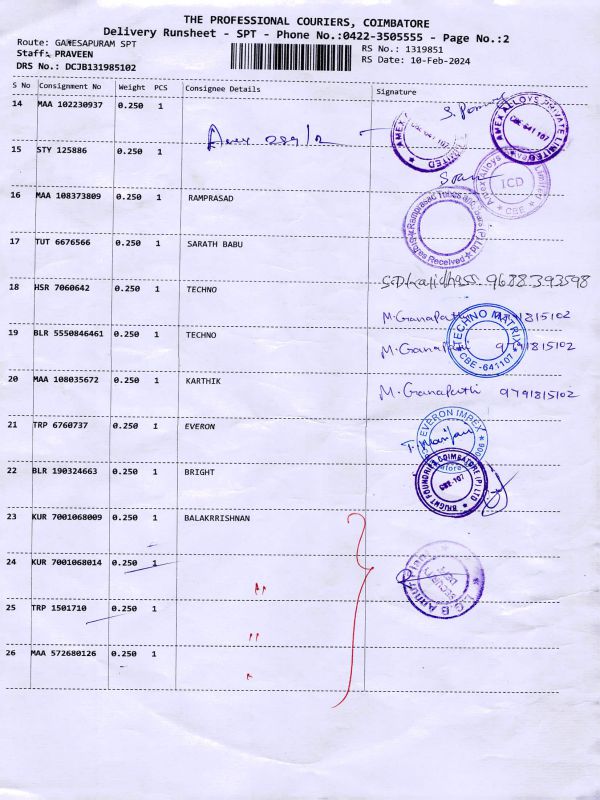 THE PROFESSIONAL COURIERS, COIMBATORE
Delivery Runsheet - SPT - Phone No.:0422-3505555 - Page No.:2
Route: GANESAPURAM SPT
Staff: PRAVEEN
DRS No.: DCJB131985102
RS No.: 1319851
RS Date: 10-Feb-2024
S No Consignment No Weight PCS Consignee Details Signature
14 MAA 102230937 0.250 1
AMEX ALLOYS PRIVATE LIMITED
CBE-641 107
15 STY 125886 0.250 1
ICD
CBE
16 MAA 108373809 0.250 1 RAMPRASAD
Received
17 TUT 6676566 0.250 1 SARATH BABU
18 HSR 7060642 0.250 1 TECHNO
9688393598
19 BLR 5550846461 0.250 1 TECHNO
M. Ganapathi 9791815102
TECHNO MATRIX
CBE-641107
M. Ganapathi 9791815102
20 MAA 108035672 0.250 1 KARTHIK
M. Ganapathi 9791815102
21 TRP 6760737 0.250 1 EVERON
EVERON IMPEX
22 BLR 190324663 0.250 1 BRIGHT
BRIGHT FOUNDRIES COIMBATORE (P) LTD
CBE-107
23 KUR 7001068009 0.250 1 BALAKRRISHNAN
24 KUR 7001068014 0.250 1 "
SECURITY
DEPT
25 TRP 1501710 0.250 1 "
26 MAA 572680126 0.250 1 "